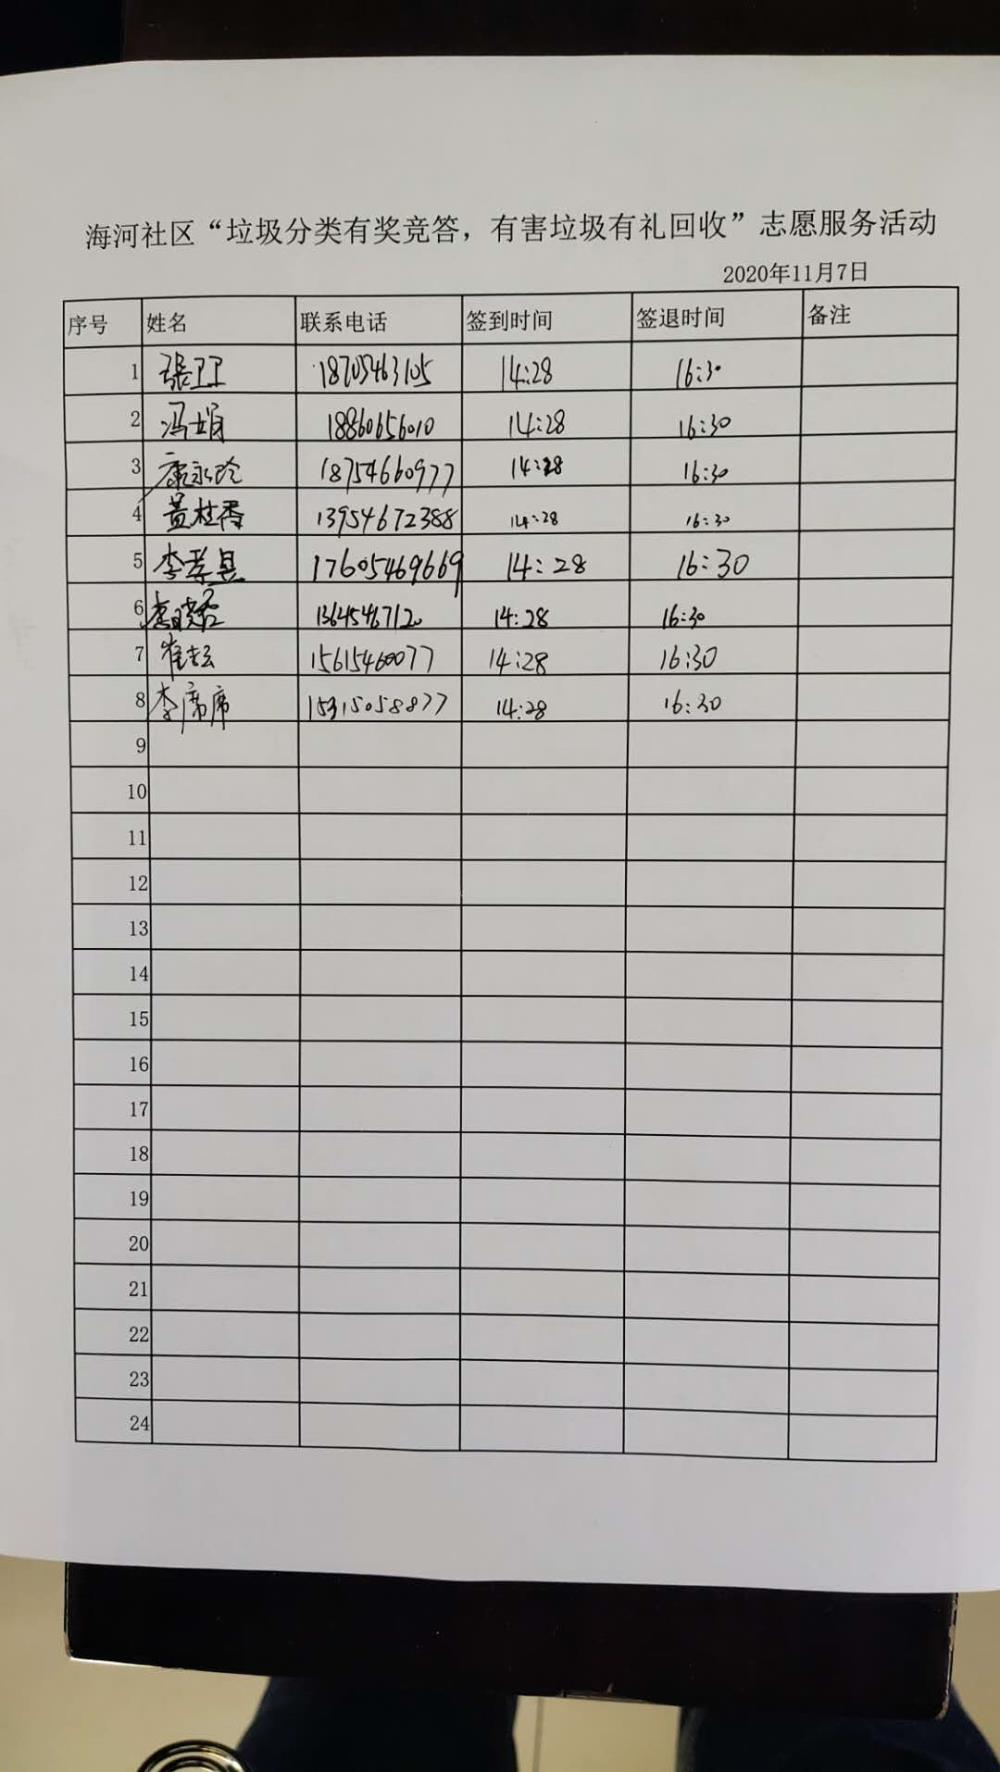 海河社区“垃圾分类有奖竞答，有害垃圾有礼回收”志愿服务活动
2020年11月7日
序号 姓名 联系电话 签到时间 签退时间 备注
1 張卫卫 18705463105 14:28 16:30
2 冯娟 18860656010 14:28 16:30
3 康永玲 18754660977 14:28 16:30
4 黄桂香 13954672388 14:28 16:30
5 李孝 17605469669 14:28 16:30
6 李晓 14:28 16:30
7 崔 15615460077 14:28 16:30
8 李席席 15315058877 14:28 16:30
9
10
11
12
13
14
15
16
17
18
19
20
21
22
23
24